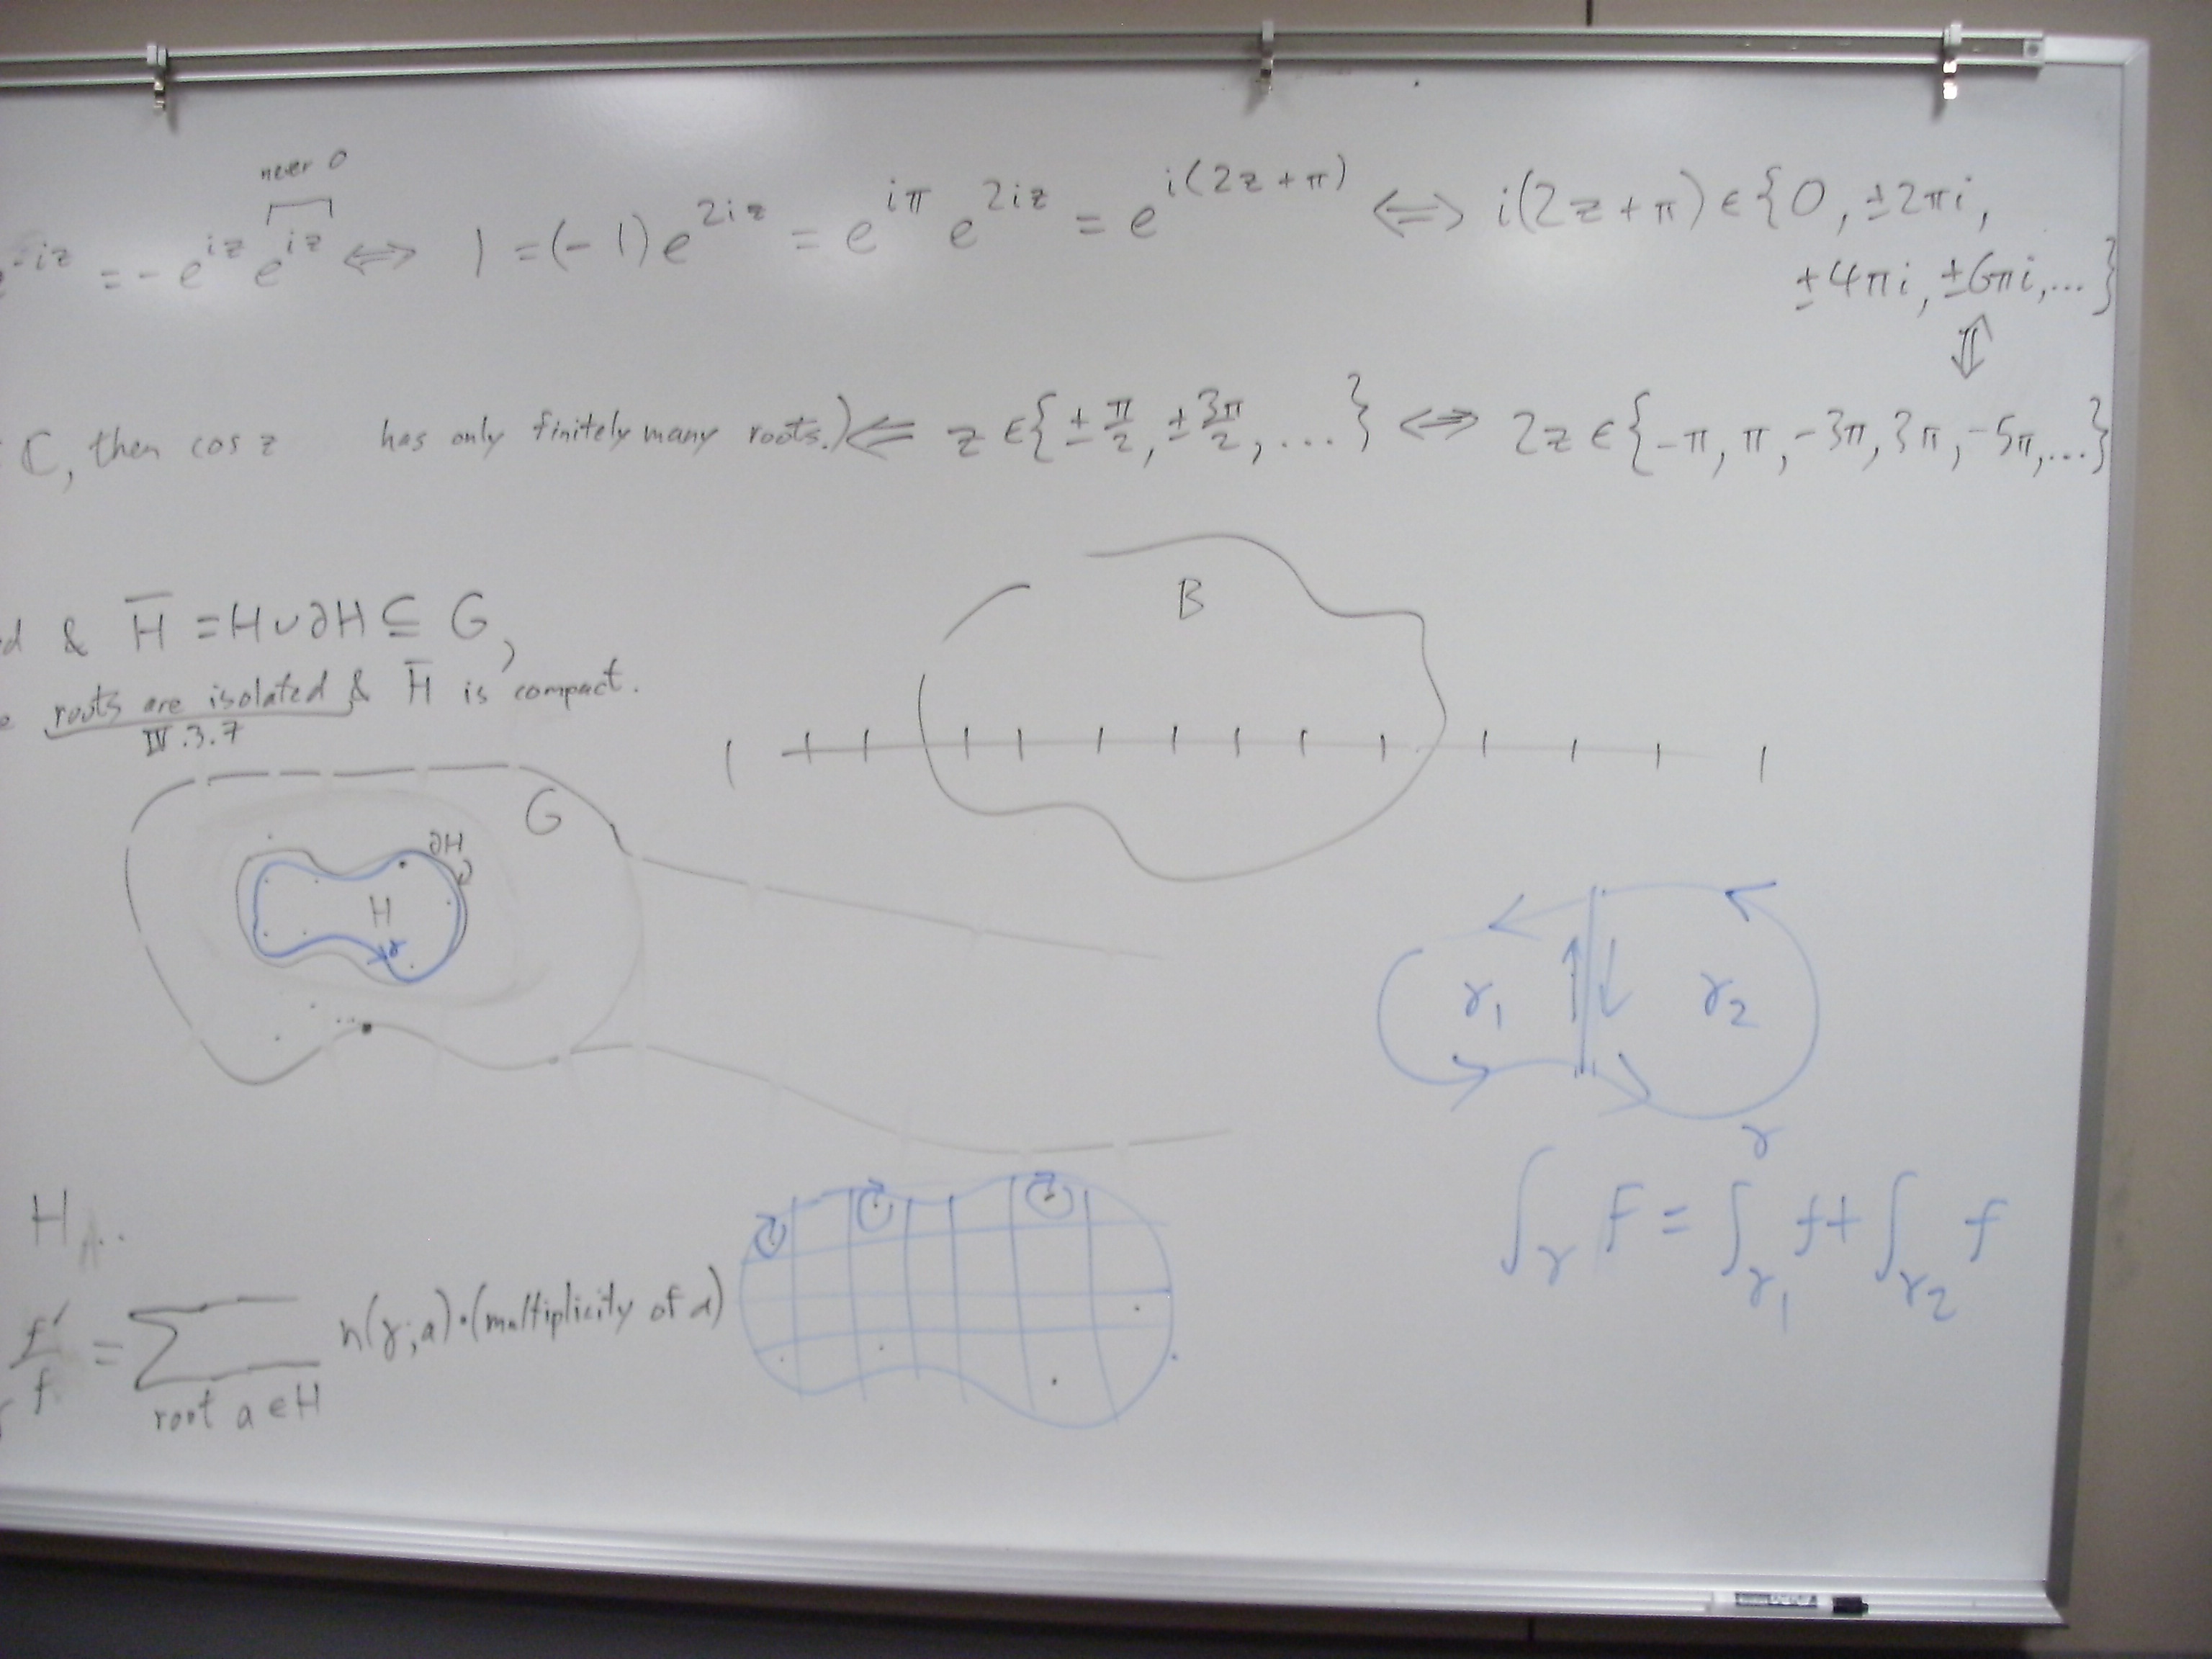 never 0
e^{-iz} = -e^{iz} e^{iz} ⟺ 1 = (-1)e^{2iz} = e^{iπ} e^{2iz} = e^{i(2z+π)} ⟺ i(2z+π) ∈ {0, ±2πi,
±4πi, ±6πi, ...}
⇕
ℂ, then cos z has only finitely many roots.) ⟸ z ∈ {± π/2, ± 3π/2, ...} ⟺ 2z ∈ {-π, π, -3π, 3π, -5π, ...}
& H̅ = H ∪ ∂H ⊆ G,
roots are isolated & H̅ is compact.
IV.3.7
B
G
∂H
H
γ
γ₁ γ₂
γ
H
∫_γ F = ∫_{γ₁} f + ∫_{γ₂} f
f′/f = ∑_{root a ∈ H} n(γ; a) · (multiplicity of a)